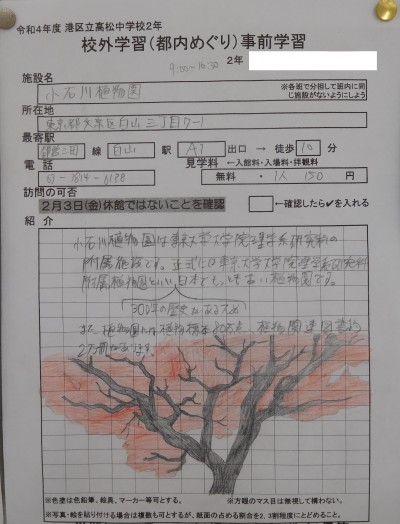 令和4年度 港区立高松中学校2年
校外学習(都内めぐり)事前学習
9:00~10:30 2年
施設名
小石川植物園
※各班で分担して班内に同じ施設がないようにしよう
所在地
東京都文京区白山三丁目7-1
最寄駅
都営三田 線 白山 駅 A1 出口 → 徒歩 10 分
電話 見学料 ←入館料・入場料・拝観料
03-3814-0138 無料 ・ 1人 150 円
訪問の可否
2月3日(金)休館ではないことを確認 ←確認したら✔を入れる
紹介
小石川植物園は東京大学大学院理学系研究科の
附属施設です。正式には東京大学大学院理学系研究科
附属植物園といい、日本でもっとも古い植物園です。
300年の歴史があるため
また、植物園には植物標本80万点、植物関連図書約
2万冊があります。
※色塗は色鉛筆、絵具、マーカー等可とする。 ※方眼のマス目は無視して構わない。
※写真・絵を貼り付ける場合は複数も可とするが、紙面の占める割合を2、3割程度にとどめること。